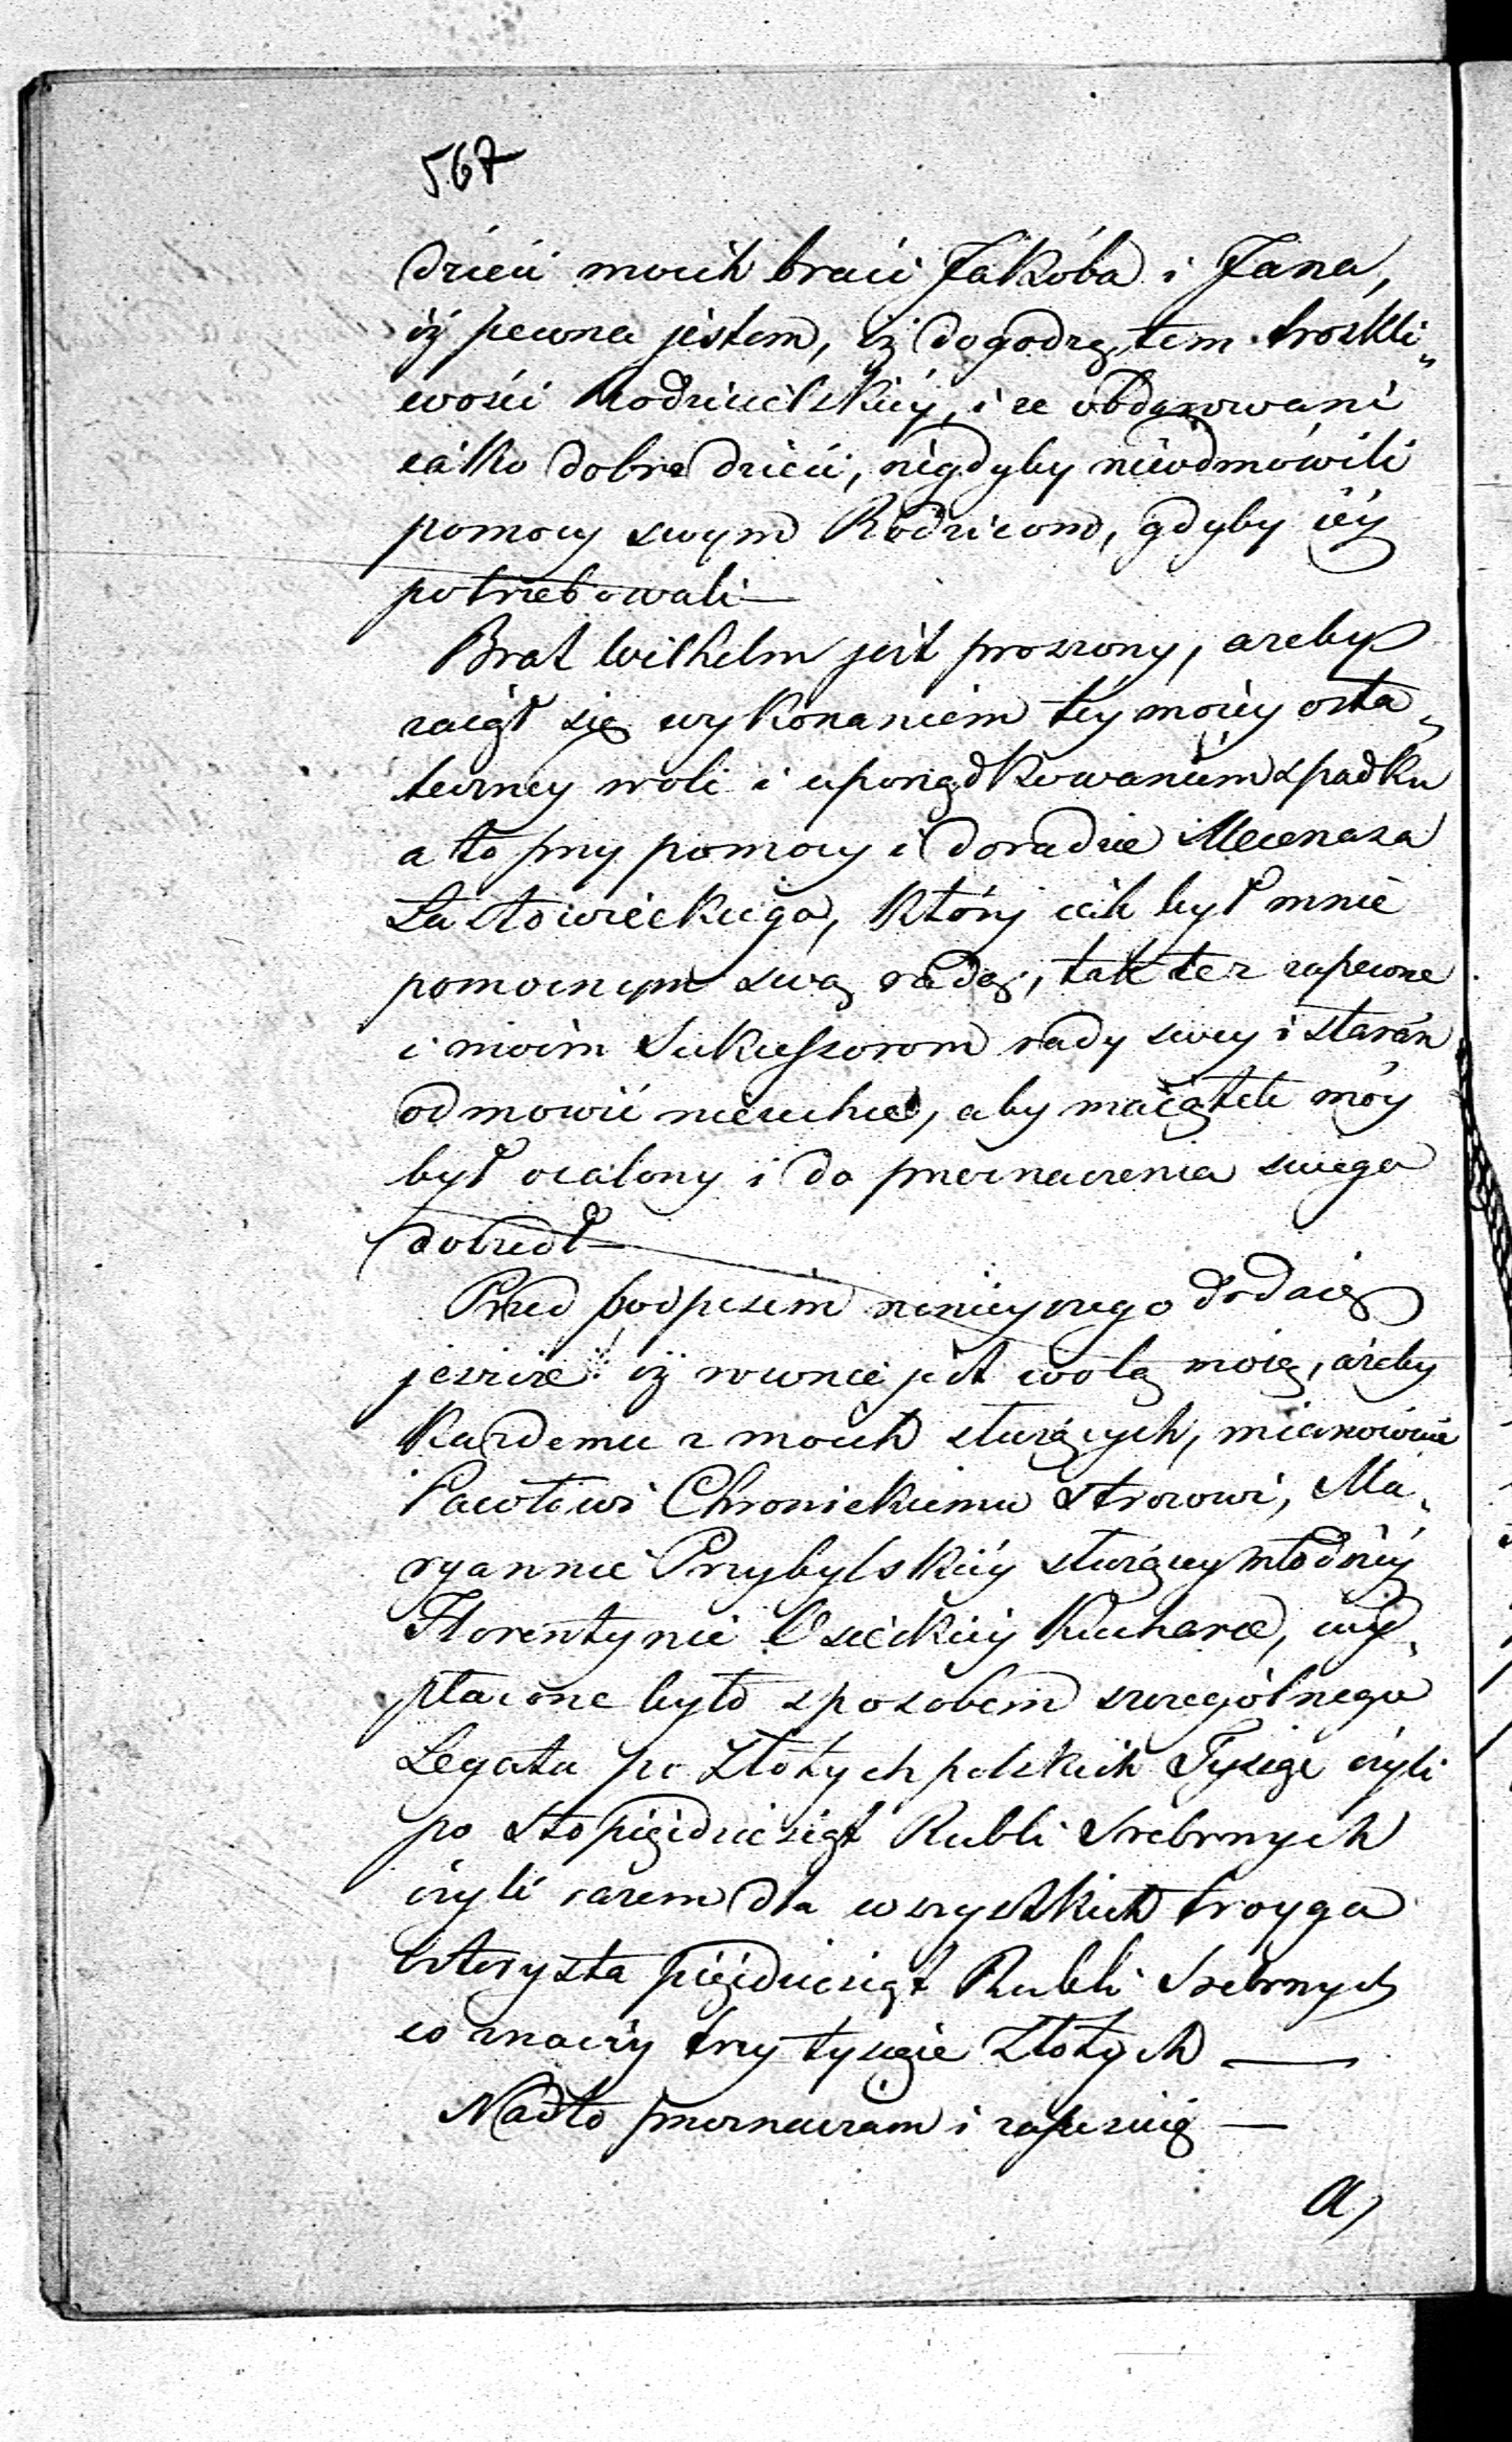 567
dzieci moich braci Jakóba i Jana,
iż pewna jestem, iż dogodzę tem troskli„
wości Rodzicielskiéy, i ze obdarowani
iako dobre dzieci, nigdyby nieodmówili
pomocy swym Rodzicom, gdyby iéy
potrzebowali —
Brat Wilhelm jest proszony, azeby
zaiął się wykonaniem téy moiéy osta„
teczney woli i uporządkowaniem spadku
a to przy pomocy i doradzie Mecenasa
który iak był mnie
pomocnym swą radą, tak tez zapewne
i moim Sukcessorom rady swey i starań
odmowić niezechce, aby maiątek móy
był ocalony i do przeznaczenia swego
doszedł —
Przed podpisem ninieyszego dodaię
jeszcze: iż rownie jest wolą moią, ażeby
Kazdemu z moich służących, mianowicie
Pawłowi Chronickiemu Strozowi, Ma„
ryannie Przybylskiéy służącey młodszéy
Florentynie Osieckiéy Kucharce, wy„
płacone było sposobem szczególnego
Legatu po Złotych polskich Tysiąc czyli
po Stopięćdziesiąt Rubli Srebrnych
czyli razem dla wszystkich troyga
czterysta pięćdziesiąt Rubli Srebrnych
co znaczy trzy tysiące Złotych —
Nadto przeznaczam i zapisuię —
a)